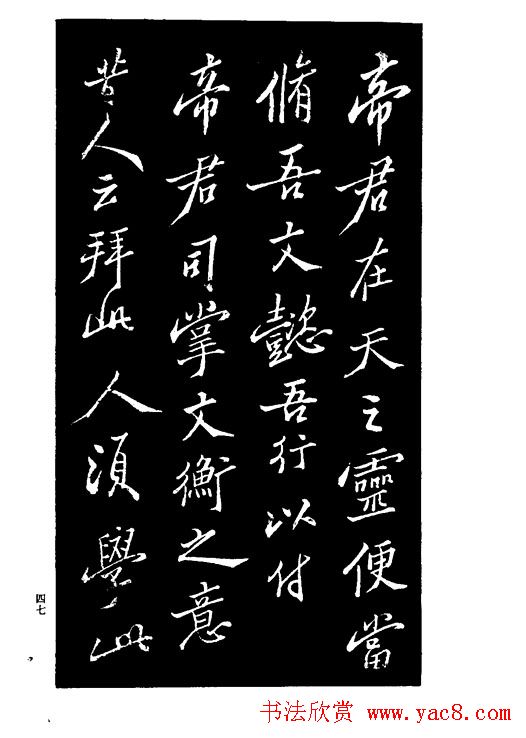 帝君在天之靈便當
脩吾文懿吾行以付
帝君司掌文衡之意
昔人云拜此人須學此
四七
书法欣赏 www.yac8.com